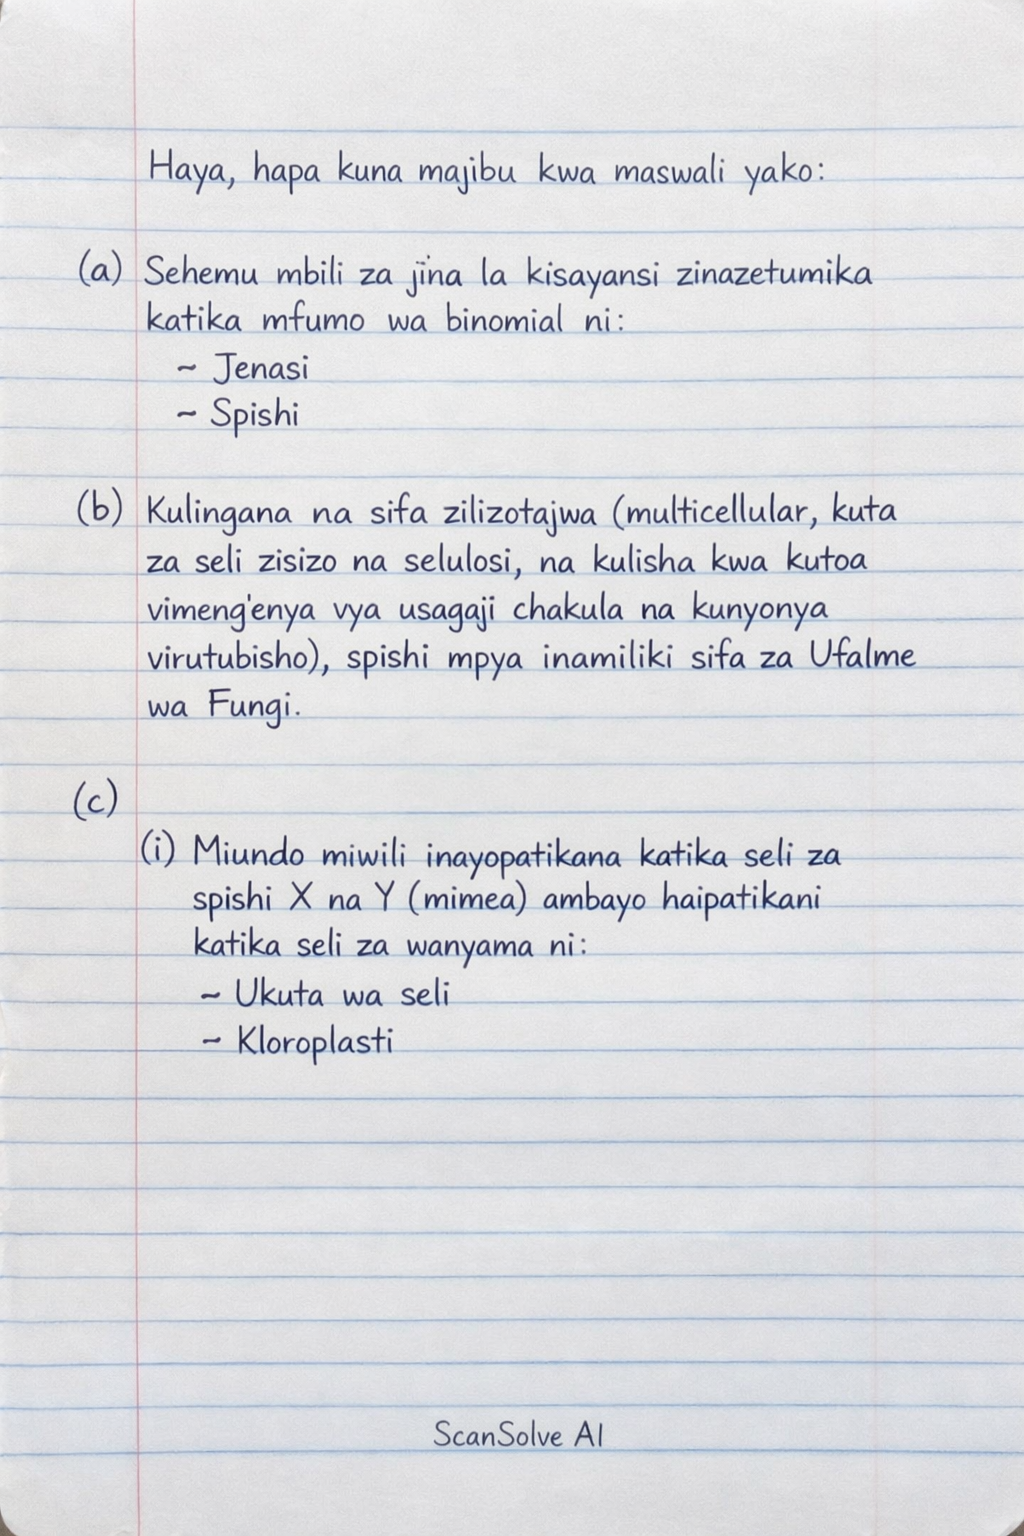 Haya, hapa kuna majibu kwa maswali yako:
(a) Sehemu mbili za jina la kisayansi zinazetumika
katika mfumo wa binomial ni:
~ Jenasi
~ Spishi
(b) Kulingana na sifa zilizotajwa (multicellular, kuta
za seli zisizo na selulosi, na kulisha kwa kutoa
vimeng'enya vya usagaji chakula na kunyonya
virutubisho), spishi mpya inamiliki sifa za Ufalme
wa Fungi.
(c)
(i) Miundo miwili inayopatikana katika seli za
spishi X na Y (mimea) ambayo haipatikani
katika seli za wanyama ni:
~ Ukuta wa seli
~ Kloroplasti
ScanSolve AI